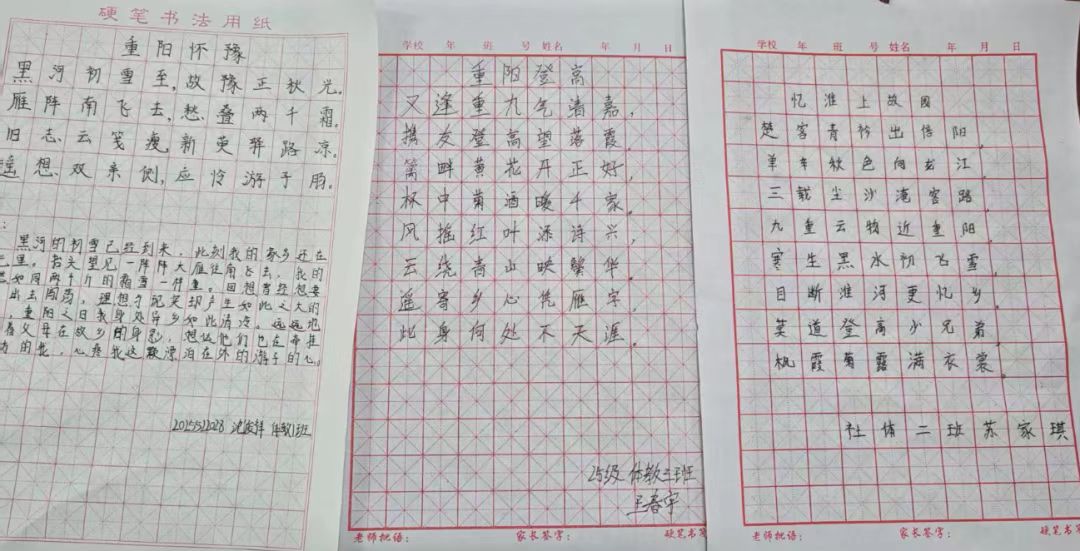 硬笔书法用纸
重阳怀豫
黑河初雪至,故豫正秋光。
雁阵南飞去,愁叠两千霜。
旧志云笺瘦,新英驿路凉。
遥想双亲侧,应怜游子
:
黑河的初雪已经到来,此刻我的家乡还在
里。抬头望见一阵阵大雁往南飞去,我的
如同两千斤的霜雪一样重。回想曾经想要
出去闯荡,理想
,重阳之日我身处异乡如此清冷。远远地
着父母在故乡的身影,想让他们也在牵挂
的我,心疼我这飘漂泊在外的游子的心。
体教1班
学校 年 班 号 姓名 年 月 日
重阳登高
又逢重九气清嘉,
携友登高望落霞。
篱畔黄花开正好,
杯中菊酒暖千家。
风摇红叶添诗兴,
云绕青山映鬓华。
遥寄乡心凭雁字,
此身何处不天涯。
25级 体教三班
王春宇
老师批语: 家长签字: 硬笔书
学校 年 班 号 姓名 年 月 日
忆淮上故园
楚客青衿出信阳,
单车秋色向龙江。
三载尘沙淹客路,
九重云物近重阳。
寒生黑水初飞雪,
目断淮河更忆乡。
笑道登高少兄弟,
枫霞菊露满衣裳。
社体二班苏家琪
老师批语: 家长签字: 硬笔书